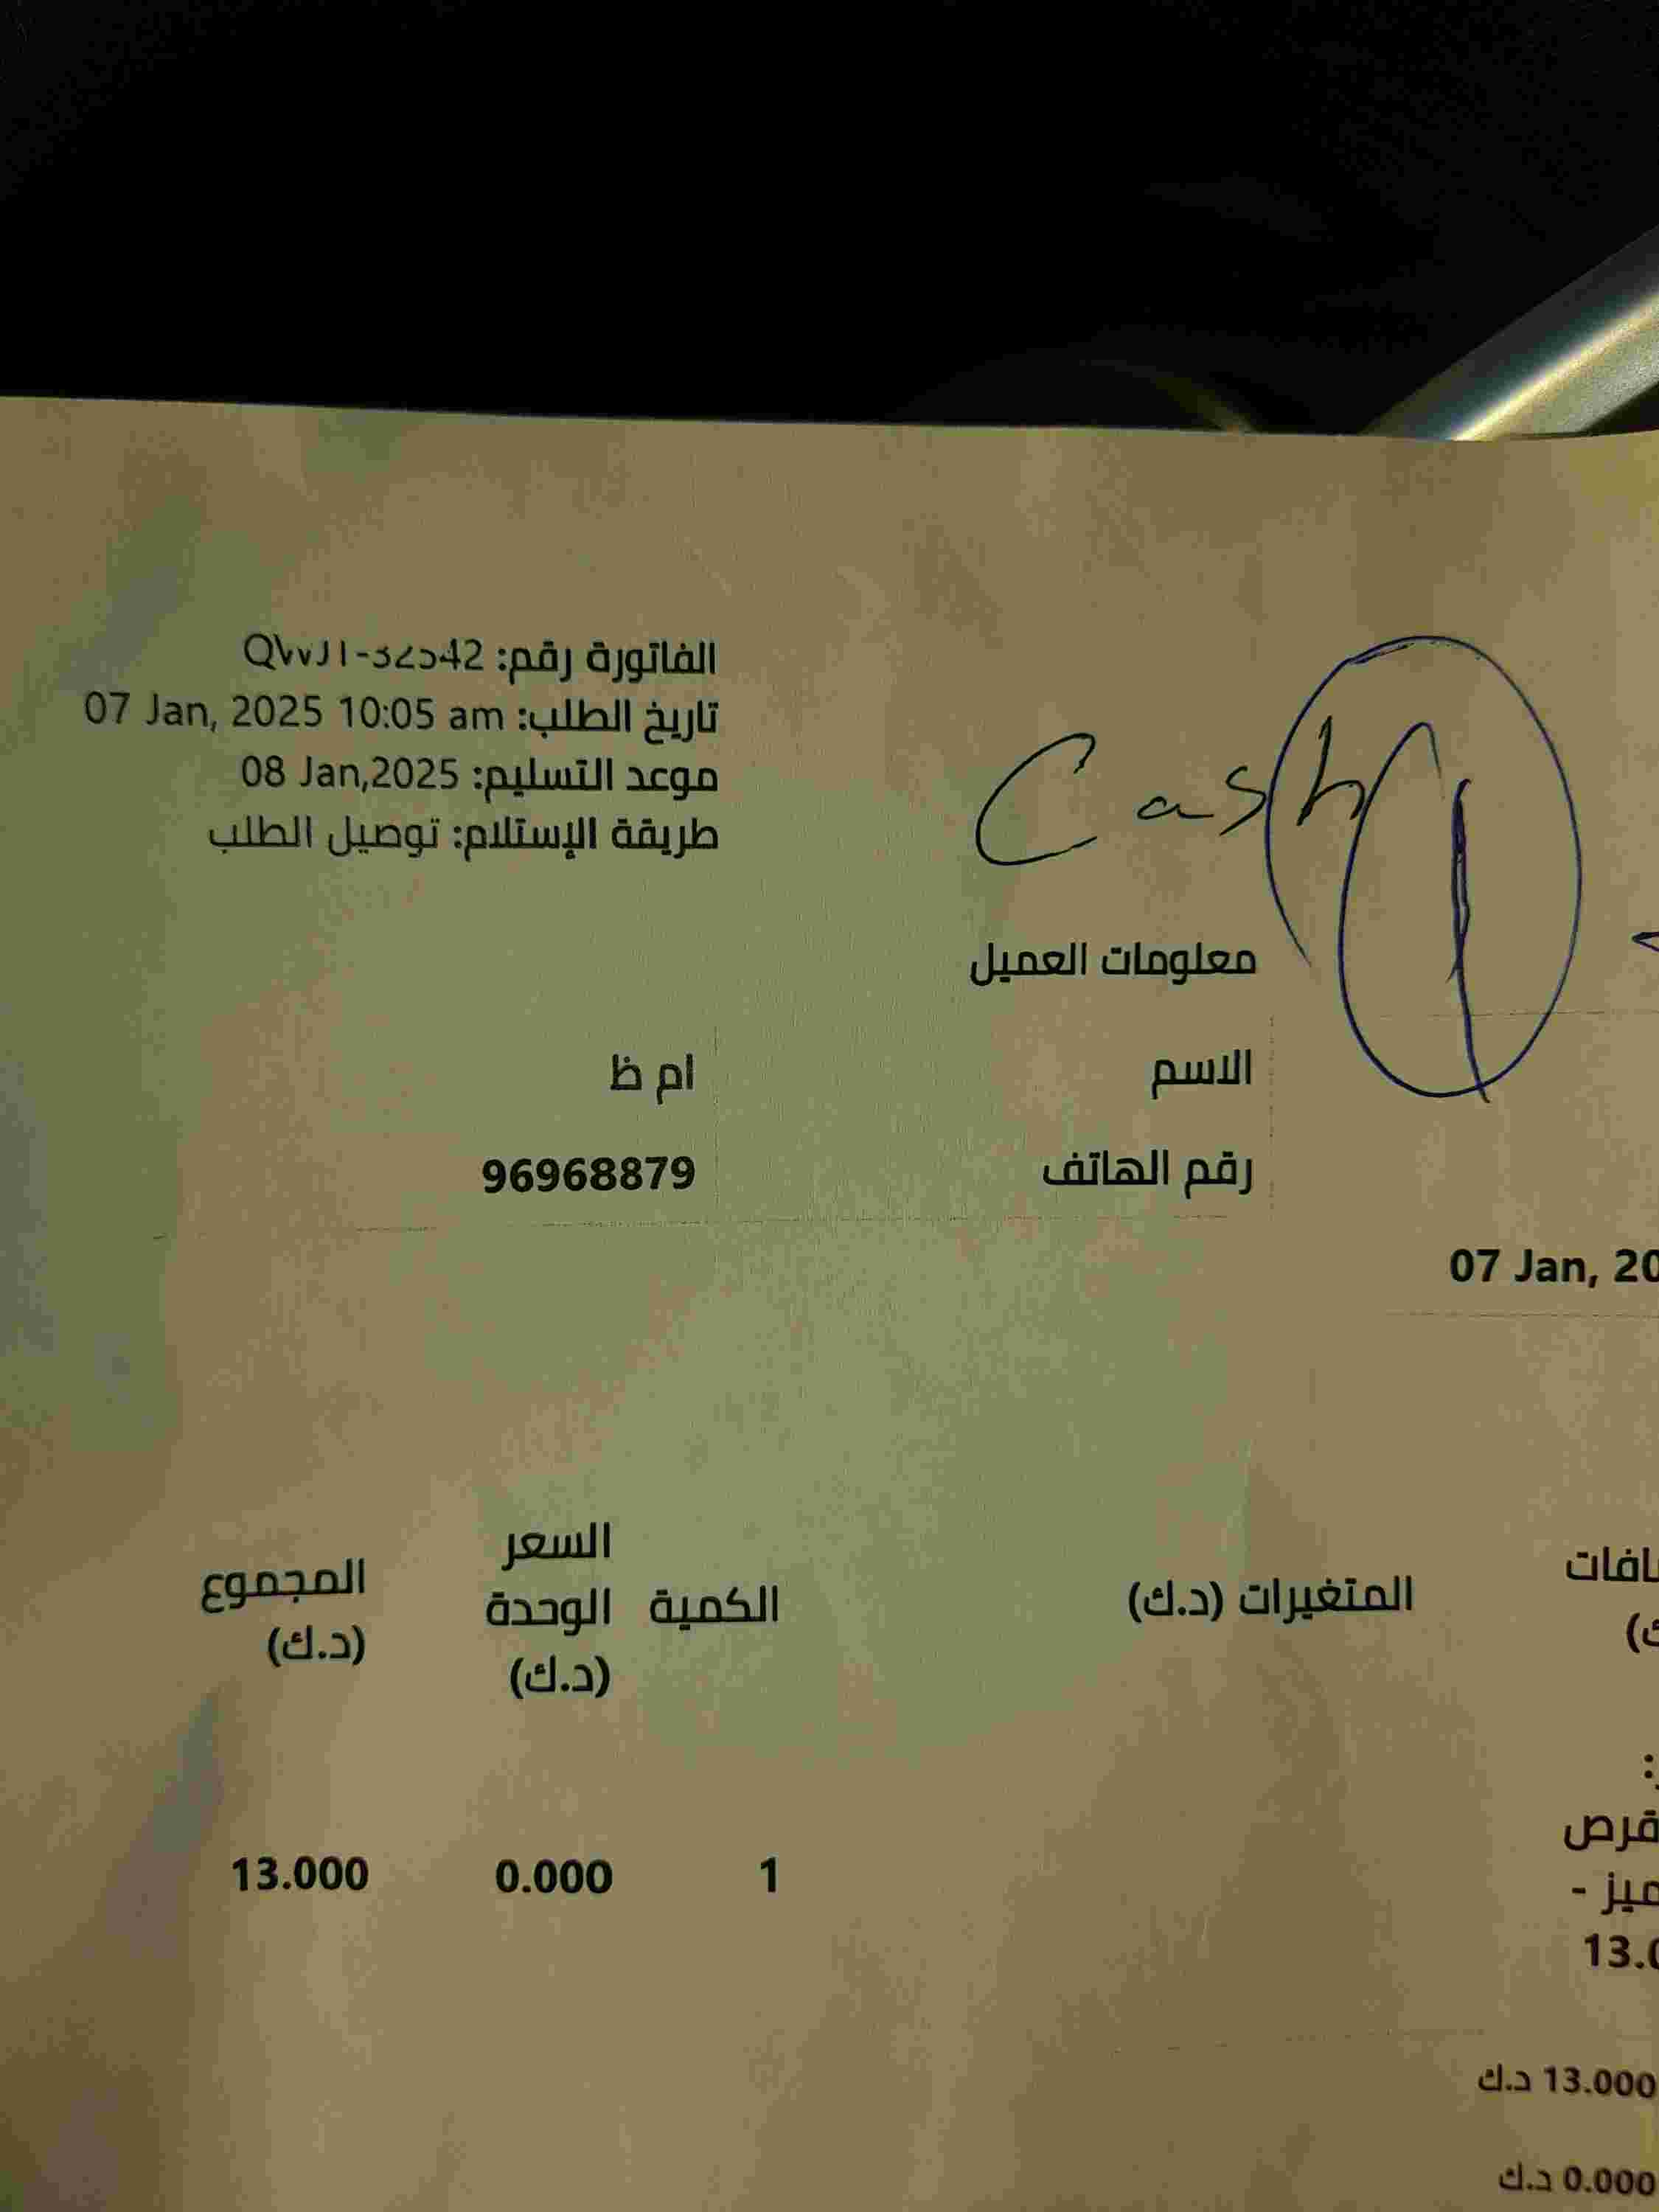 الفاتورة رقم:
تاريخ الطلب: 07 Jan, 2025 10:05 am
موعد التسليم: 08 Jan,2025
طريقة الإستلام: توصيل الطلب
Cash
1
معلومات العميل
الاسم ام ظ
رقم الهاتف 96968879
07 Jan, 20
المتغيرات (د.ك) الكمية السعر الوحدة (د.ك) المجموع (د.ك)
1 0.000 13.000
13.000 د.ك
0.000 د.ك